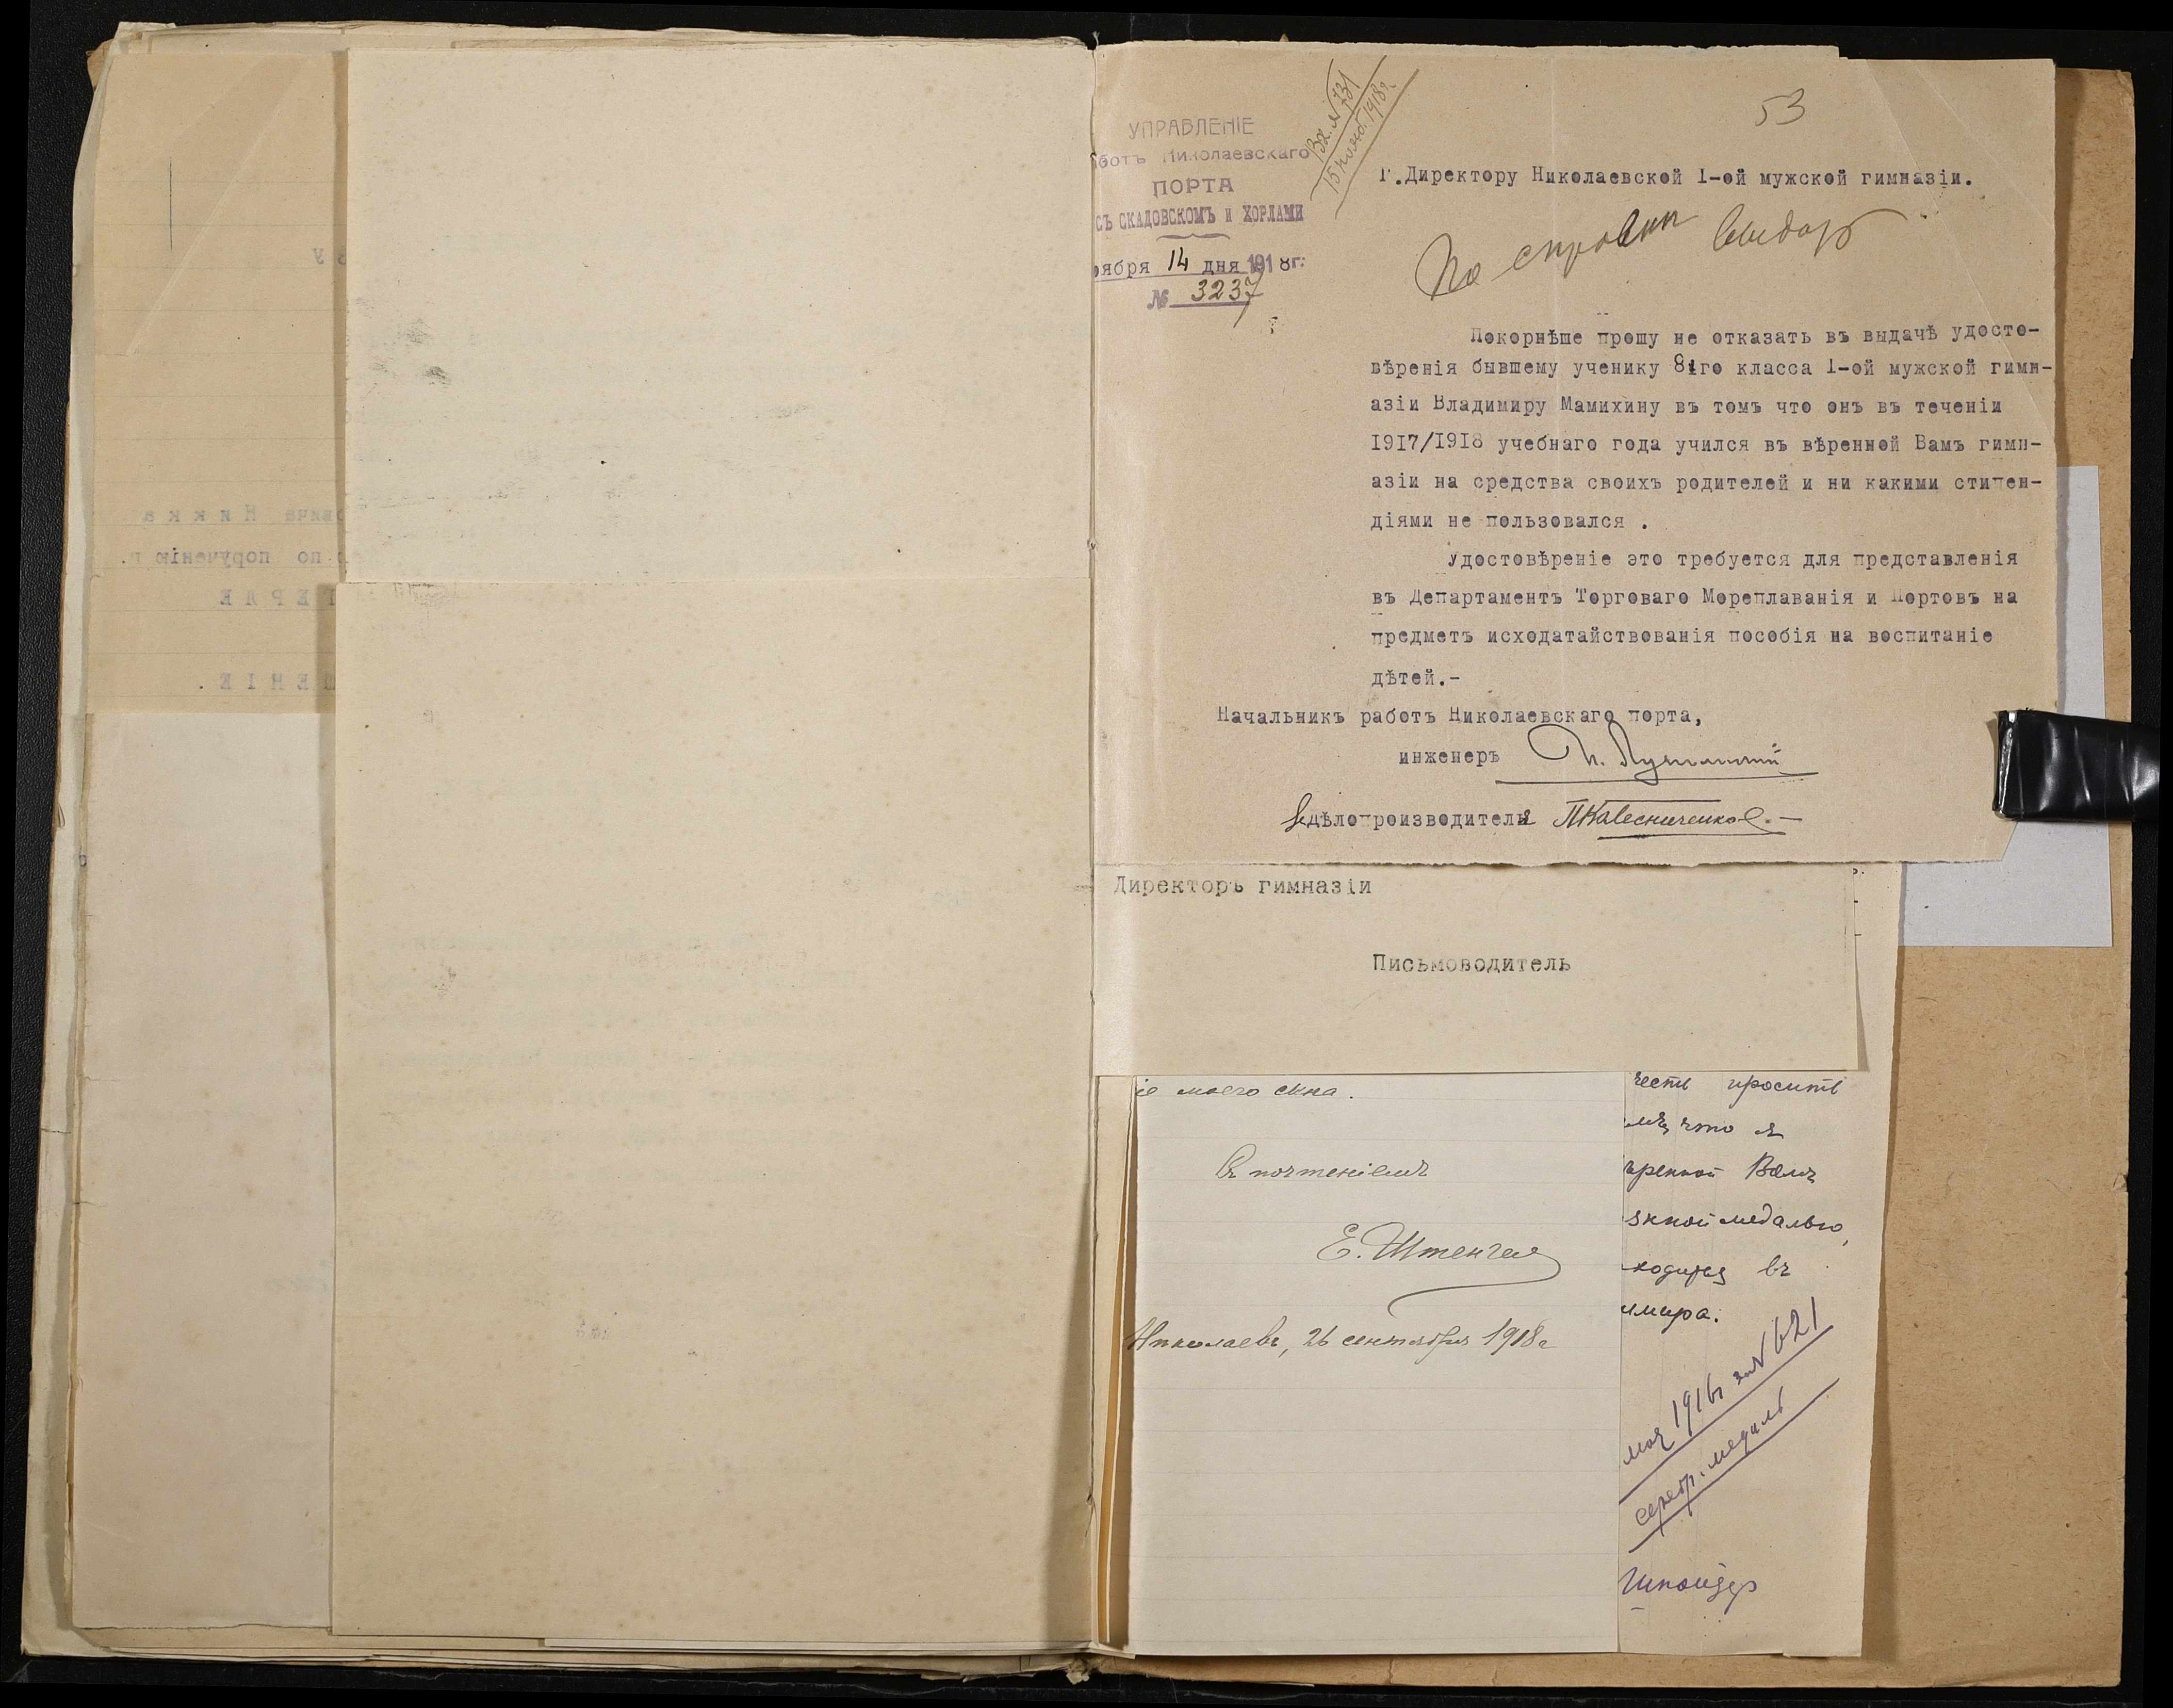 53
Вх. № 731
15 нояб. 1918 г.
УПРАВЛЕНІЕ
ботъ Николаевскаго
ПОРТА
СЪ СКАДОВСКОМЪ и ХОРЛАМИ
оября 14 дня 1918 г.
№ 3237
Г.Директору Николаевской 1-ой мужской гимназіи.
По справкѣ выдать
Покорнѣше прошу не отказать въ выдачѣ удосто-
вѣренія бывшему ученику 8-го класса 1-ой мужской гимн-
азіи Владимиру Мамихину въ томъ что онъ въ теченіи
1917/1918 учебнаго года учился въ вѣренной Вамъ гимн-
азіи на средства своихъ родителей и ни какими стипен-
діями не пользовался .
Удостовѣреніе это требуется для представленія
въ Департаментъ Торговаго Мореплаванія и Портовъ на
предметъ исходатайствованія пособія на воспитаніе
дѣтей.-
Начальникъ работъ Николаевскаго порта,
инженеръ
дѣлопроизводителя ПКолесниченко
Директоръ гимназіи
Письмоводитель
іе моего сына.
Съ почтеніемъ
Е. Штенгел
Николаевъ, 26 сентября 1918 г
честь просить
мъ, что я
ѣренной Вамъ
яной медалью,
ходися въ
имира.
мая 1916 г за № 621
серебр. медаль
Шнайдер
вича Никка
по порученію г.
ТЕРЛЕ
ШЕНІЕ.